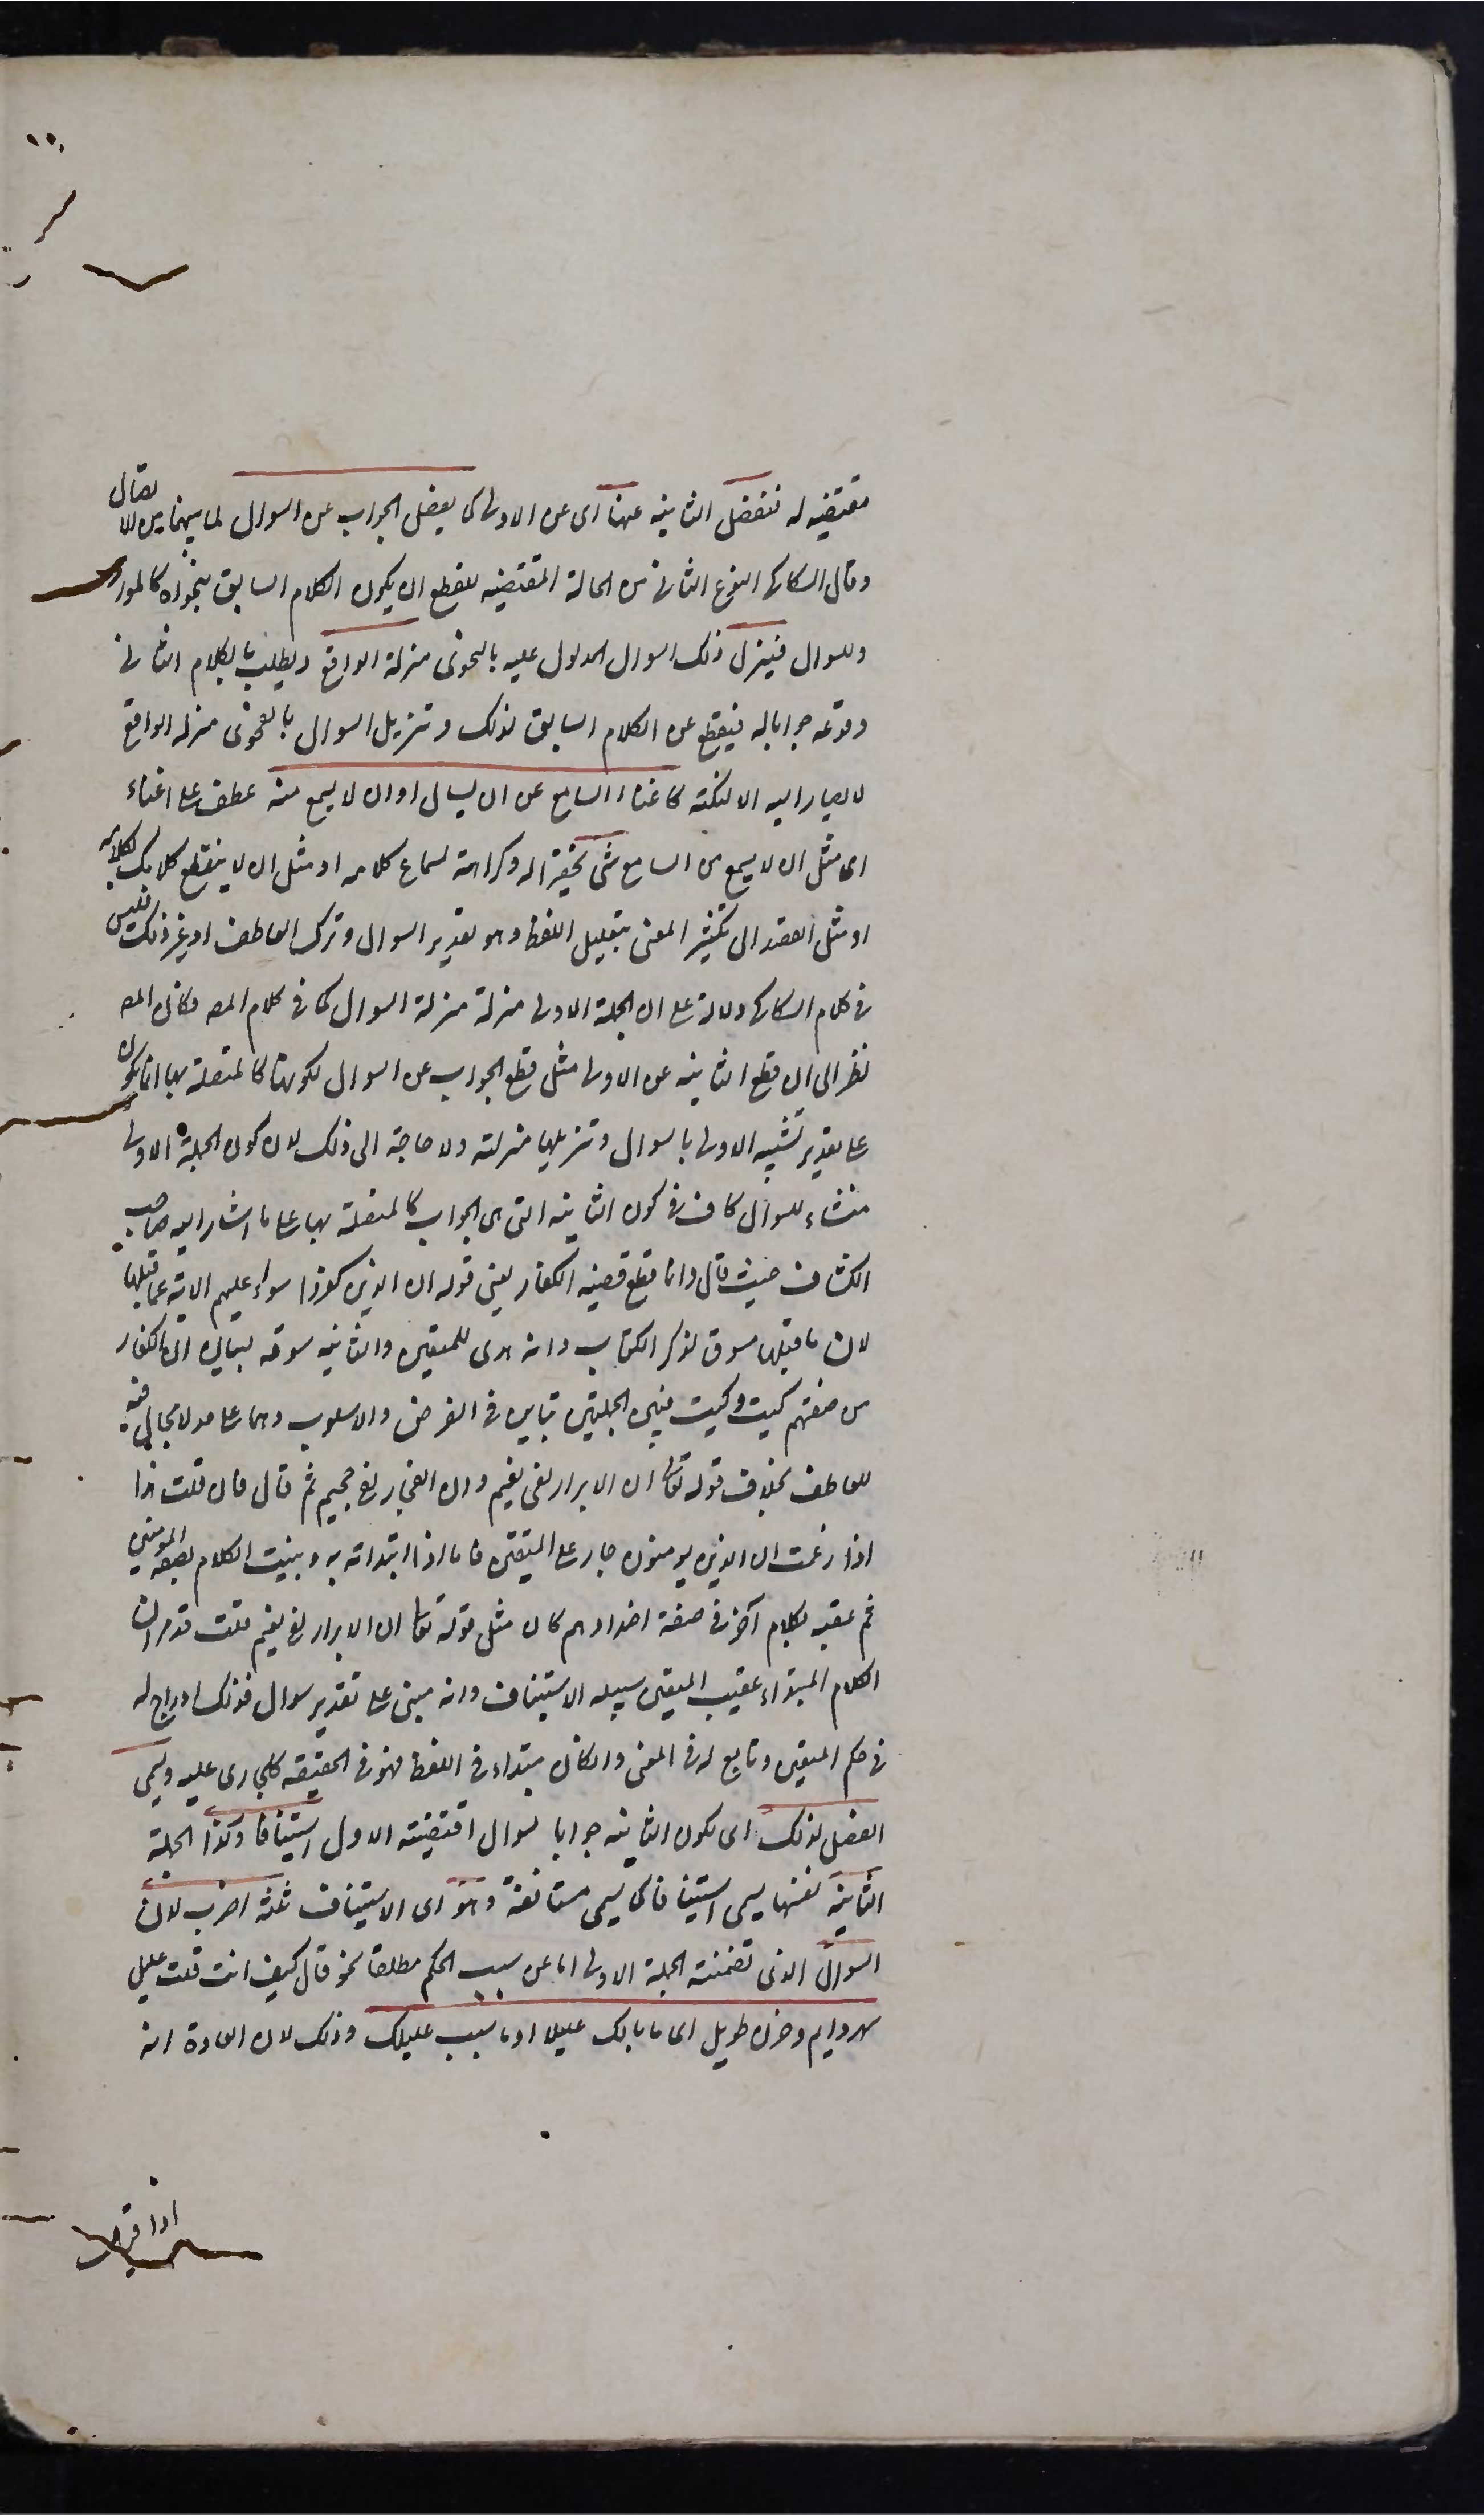 ١٥٠
مقتضيه له فتفصل الثانيه عنها اى عن الاولى كما يفصل الجواب عن السوال لما بينهما من الاتصال
وقال السكاكى النوع الثانى من الحالة المقتضيه للقطع ان يكون الكلام السابق بفحواه كالمورد
للسوال فينزل ذلك السوال المدلول عليه بالفحوى منزلة الواقع ويطلب بالكلام الثانى
وقوعه جوابا له فيقطع عن الكلام السابق لذلك وتنزيل السوال بالفحوى منزلة الواقع
لا يصار اليه الا لنكتة كاغناء السامع عن ان يسال او ان لا يسمع منه عطف على اغناء
اى مثل ان لا يسمع من السامع شئ تحقيرا له وكراهة لسماع كلامه او مثل ان لا ينقطع كلامك بكلامه
او مثل القصد الى تكثير المعنى بتقليل اللفظ وهو تقدير السوال وترك العاطف او غير ذلك فليس
فى كلام السكاكى دلالة على ان الجملة الاولى منزلة منزلة السوال كما فى كلام المصـ فكان المصـ
نظر الى ان قطع الثانيه عن الاولى مثل قطع الجواب عن السوال لكونها كالمتصلة بها انما يكون
على تقدير تشبيه الاولى بالسوال وتنزيلها منزلته ولا حاجة الى ذلك لان كون الجملة الاولى
منشاء للسوال كاف فى كون الثانية التى هى الجواب كالمتصلة بها على ما اشار اليه صاحب
الكشاف حيث قال وانما قطع قصة الكفار يعنى قوله ان الذين كفروا سواء عليهم الاية عما قبلها
لان ما قبلها مسوق لذكر الكتاب وانه هدى للمتقين والثانيه سوقه لبيان ان الكفار
من صفتهم كيت وكيت فبين الجملتين تباين فى الغرض والاسلوب وهما على حد لا مجال فيه
للعاطف بخلاف قوله تعالى ان الابرار لفى نعيم وان الفجار لفى جحيم ثم قال فان قلت هذا
اذا زعمت ان الذين يومنون جار على المتقين فاما اذا ابتداته به وبنيت الكلام بصفة المومنين
ثم عقبه بكلام آخر فى صفة اضدادهم كان مثل قوله تعالى ان الابرار لفى نعيم قلت قد مر ان
الكلام المبتداء عقيب المتقين سبيله الاستيناف وانه مبنى على تقدير سوال فذلك ادراج له
فى حكم المتقين وتابع له فى المعنى وان كان مبتداء فى اللفظ فهو فى الحقيقه كالجارى عليه ويسمى
الفصل لذلك اى لكون الثانيه جوابا لسوال اقتضته الاولى استينافا وكذا الجملة
الثانية نفسها يسمى استينافا كما يسمى مستانفة وهو اى الاستيناف ثلثة اضرب لان
السوال الذى تضمنته الجملة الاولى اما عن سبب الحكم مطلقا نحو قال كيف انت قلت عليل
سهر دايم وحزن طويل اى ما بالك عليلا او ما سبب علتك وذلك لان العادة انه
اذا قيل